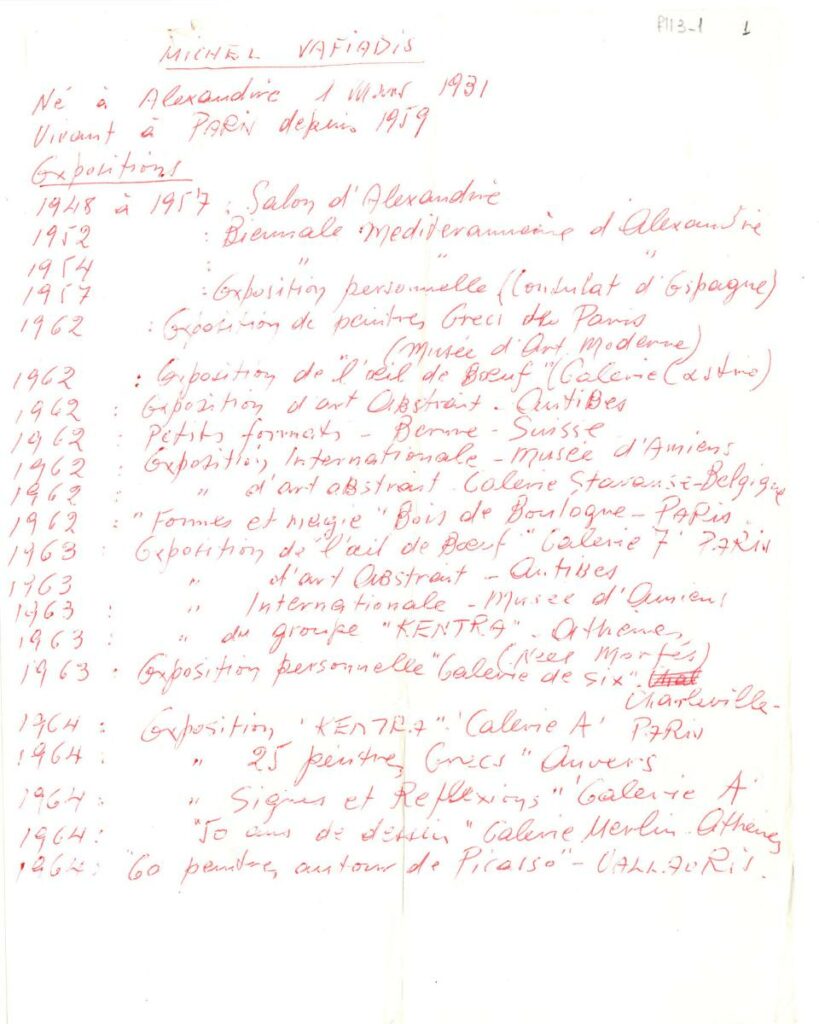 P113-1 1
MICHEL VAFIADIS
Né à Alexandrie 1 Mars 1931
Vivant à PARIS depuis 1959
Expositions
1948 à 1957 : Salon d'Alexandrie
1952 : Biennale Mediterannéenne d'Alexandrie
1954 : " " "
1957 : Exposition personnelle (Consulat d'Espagne)
1962 : Exposition de peintres Grecs de Paris
(Musée d'Art Moderne)
1962 : Exposition de "l'œil de Bœuf" (Galerie
1962 : Exposition d'art Abstrait - Antibes
1962 : Petits formats - Berne - Suisse
1962 : Exposition Internationale - Musée d'Amiens
1962 : " d'art abstrait. Galerie - Belgique
1962 : "Formes et magie" Bois de Boulogne - PARIS
1963 : Exposition de "l'œil de Bœuf" "Galerie 7" PARIS
1963 " d'art Abstrait - Antibes
1963 : " Internationale - Musée d'Amiens
1963 : " du groupe "KENTRA" - Athenes
1963 : Exposition personnelle "Galerie de Six".
Charleville-
1964 : Exposition "KENTRA" "Galerie A" PARIS
1964 : " 25 peintres Grecs" Anvers
1964 : " Signes et Reflexions" "Galerie A"
1964 : "50 ans de dessin" Galerie Merlin. Athenes
1964 : "60 peintres autour de Picasso" - VALLAURIS.